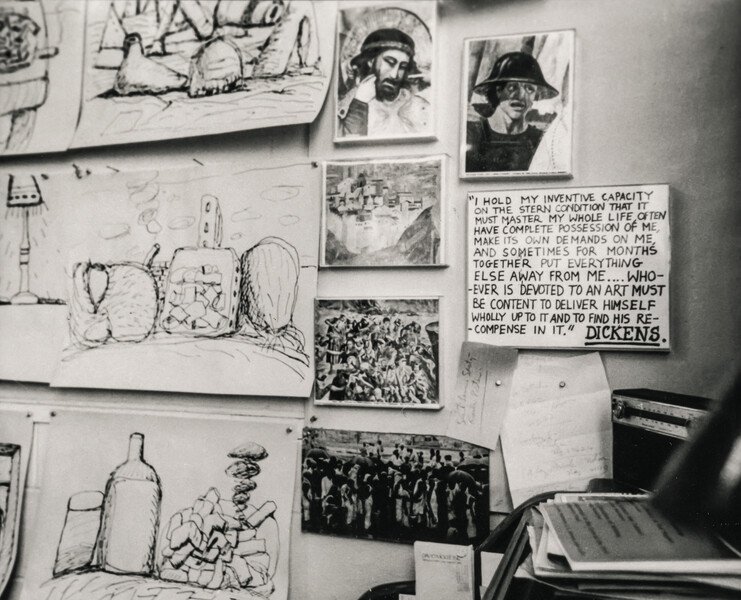 "I HOLD MY INVENTIVE CAPACITY
ON THE STERN CONDITION THAT IT
MUST MASTER MY WHOLE LIFE, OFTEN
HAVE COMPLETE POSSESSION OF ME,
MAKE ITS OWN DEMANDS ON ME,
AND SOMETIMES FOR MONTHS
TOGETHER PUT EVERYTHING
ELSE AWAY FROM ME.... WHO-
-EVER IS DEVOTED TO AN ART MUST
BE CONTENT TO DELIVER HIMSELF
WHOLLY UP TO IT AND TO FIND HIS RE-
-COMPENSE IN IT." DICKENS.